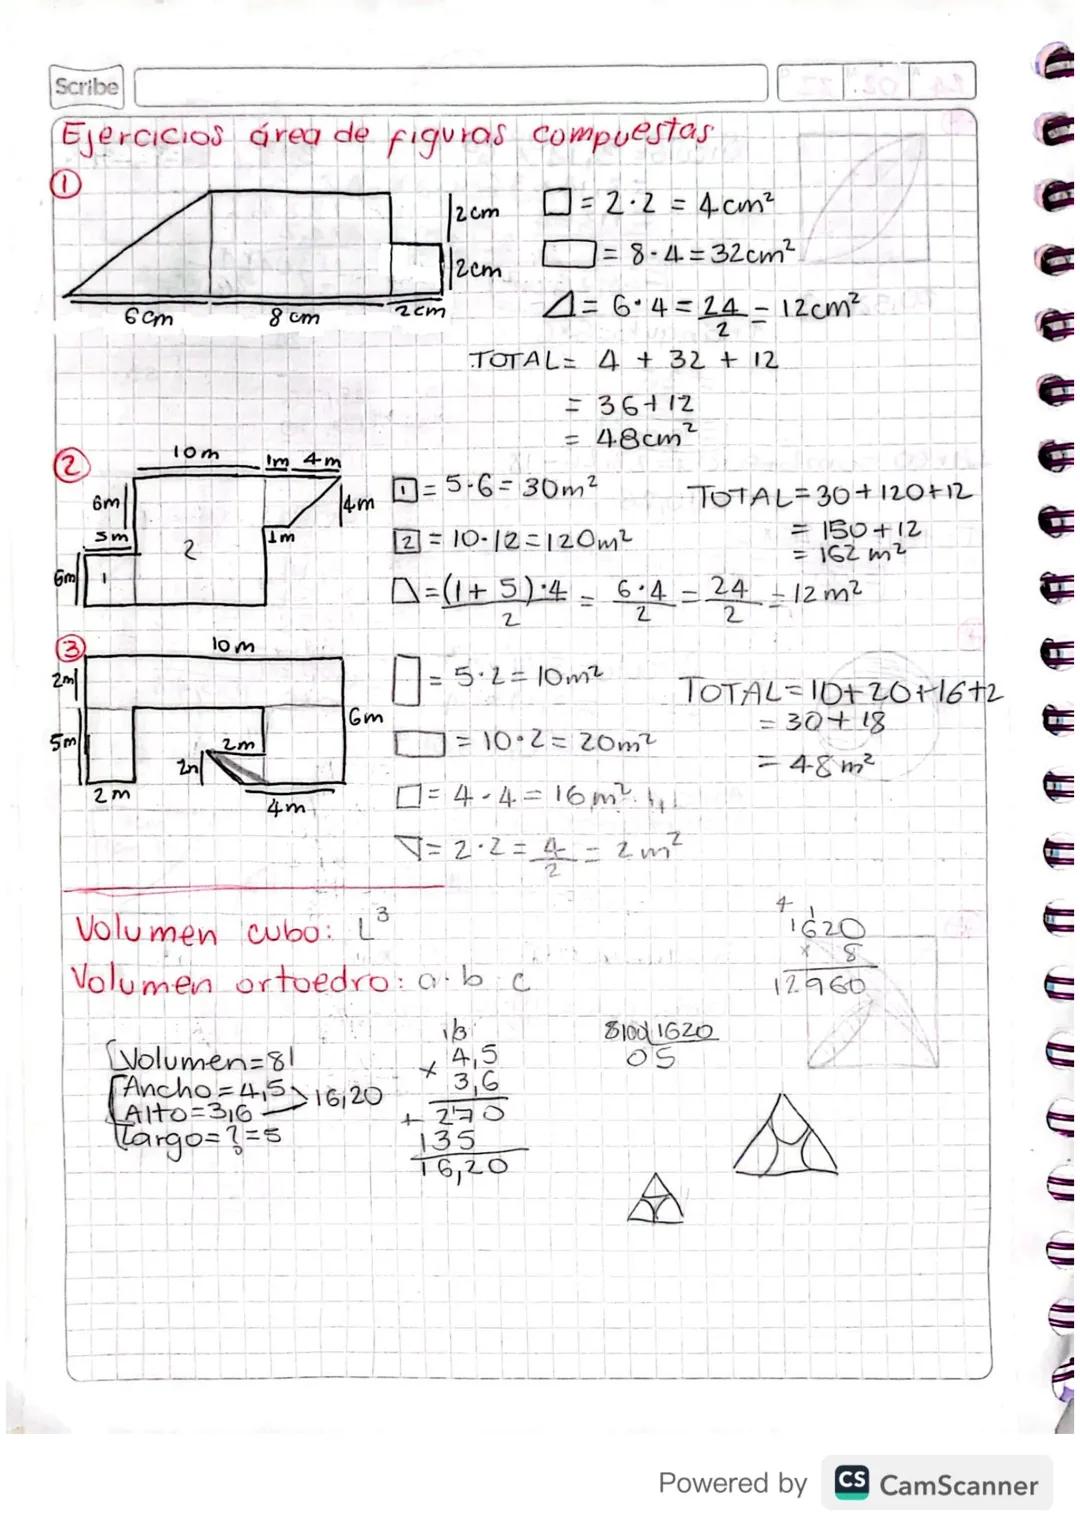 Scribe
Ejercicios área de figuras compuestas
①
2cm
2cm
6cm 8cm 2cm
□ = 2·2 = 4cm²
▭ = 8·4 = 32cm²
◿ = 6·4 = 24/2 = 12cm²
TOTAL = 4 + 32 + 12
= 36+12
= 48cm²
②
10m 1m 4m
6m 4m
3m 1m
2
6m 1
1 = 5·6 = 30m²
2 = 10·12 = 120m²
= (1+5)·4/2 = 6·4/2 = 24/2 = 12m²
TOTAL = 30+120+12
= 150+12
= 162 m²
③
10m
2m
6m
5m
2m
2m
4m
▯ = 5·2 = 10m²
▭ = 10·2 = 20m²
□ = 4·4 = 16m²
= 2·2 = 4/2 = 2m²
TOTAL = 10+20+16+2
= 30+18
= 48m²
Volumen cubo: L³
Volumen ortoedro: a·b·c
4 1
1620
x 8
12960
Volumen=81
Ancho=4,5 > 16,20
Alto=3,6
Largo=?=5
4,5
x 3,6
+ 270
135
16,20
8100 1620
0 5
Powered by CS CamScanner